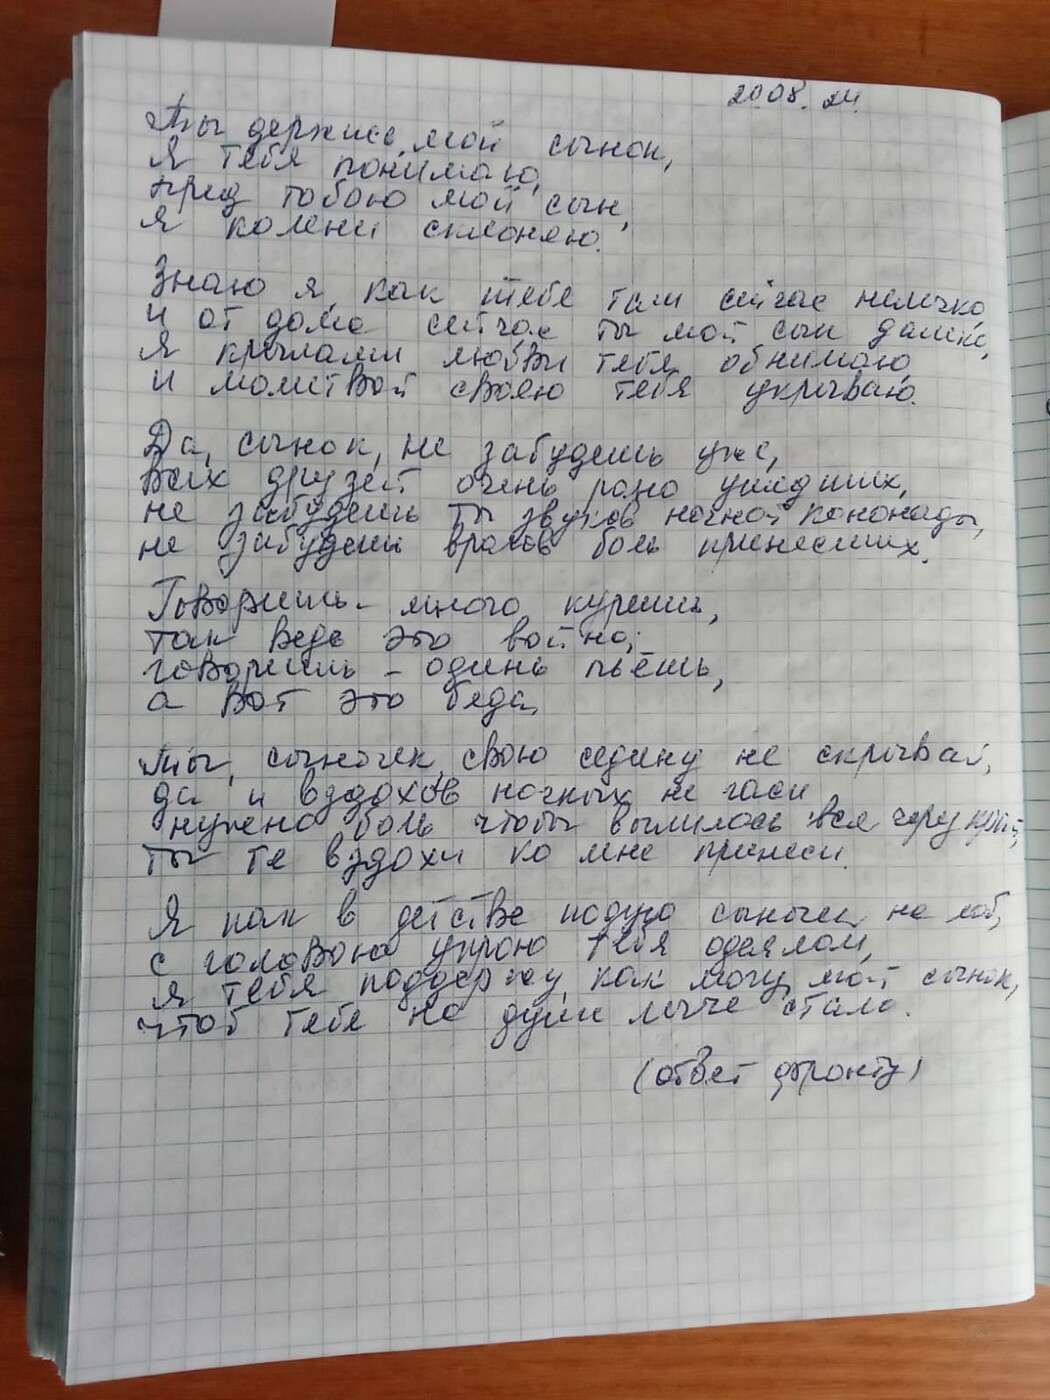 20.08.24.
Ты держись, мой сынок,
Я тебя понимаю,
пред тобою мой сын,
я колени склоняю.
Знаю я, как тебе там сейчас нелегко
и от дома сейчас ты мой сын далеко,
Я крылами любви тебя обнимаю
и молитвой своею тебя укрываю.
Да, сынок, не забудешь уже,
всех друзей очень рано ушедших,
не забудешь ты звуков ночной кононады,
не забудешь врагов боль принесших.
Говоришь - много куришь,
так ведь это война;
говоришь - один пьёшь,
а вот это беда,
Ты, сыночек, свою седину не скрывай,
да и вздохов ночных не гаси
нужно боль чтобы вылилась вся через край,
ты те вздохи ко мне принеси.
Я как в детстве подую сыночек на лоб,
с головою укрою тебя одеялом,
Я тебя поддержу, как могу, мой сынок,
чтоб тебе на душе легче стало.
(ответ фронту)